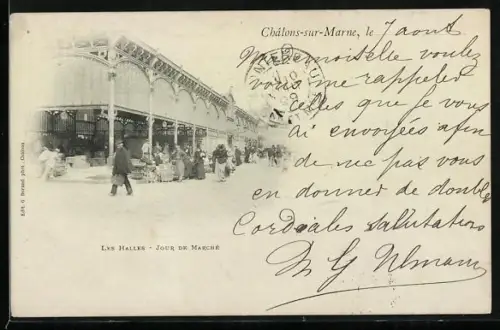 Châlons-sur-Marne, le 7 aout
Mademoiselle voulez
vous me rappeler
celles que je vous
ai envoyées afin
de ne pas vous
en donner de double
Cordiales salutations
LES HALLES - JOUR DE MARCHÉ